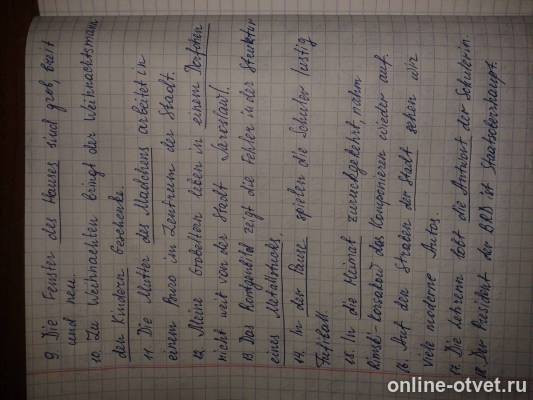 9. Die Fenster des Hauses sind groß, breit
und neu.
10. Zu Weihnachten bringt der Weihnachtsmann
den Kindern Geschenke.
11. Die Mutter des Mädchens arbeitet in
einem Büro im Zentrum der Stadt.
12. Meine Großeltern leben in einem Dorfchen
nicht weit von der Stadt Jaroslawl.
13. Das Rontgenbild zeigt die Fehler in der Struktur
eines Metallstucks.
14. In der Pause spielen die Schuler lustig
Fußball.
15. In die Heimat zurückgekehrt, nahm
Rimski-Korsakow das Komponieren wieder auf.
16. Auf den Straßen der Stadt sehen wir
viele moderne Autos.
17. Die Lehrerin lobt die Antwort der Schulerin.
18. Der Präsident der BRD ist Staatsoberhaupt.
online-otvet.ru